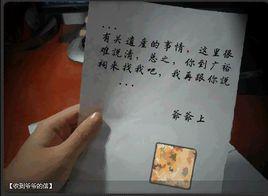 ...
有关遗产的事情，这里很
难説清，总之，你到广裕
祠来找我吧，我再跟你説
...
爷爷上
【收到爷爷的信】